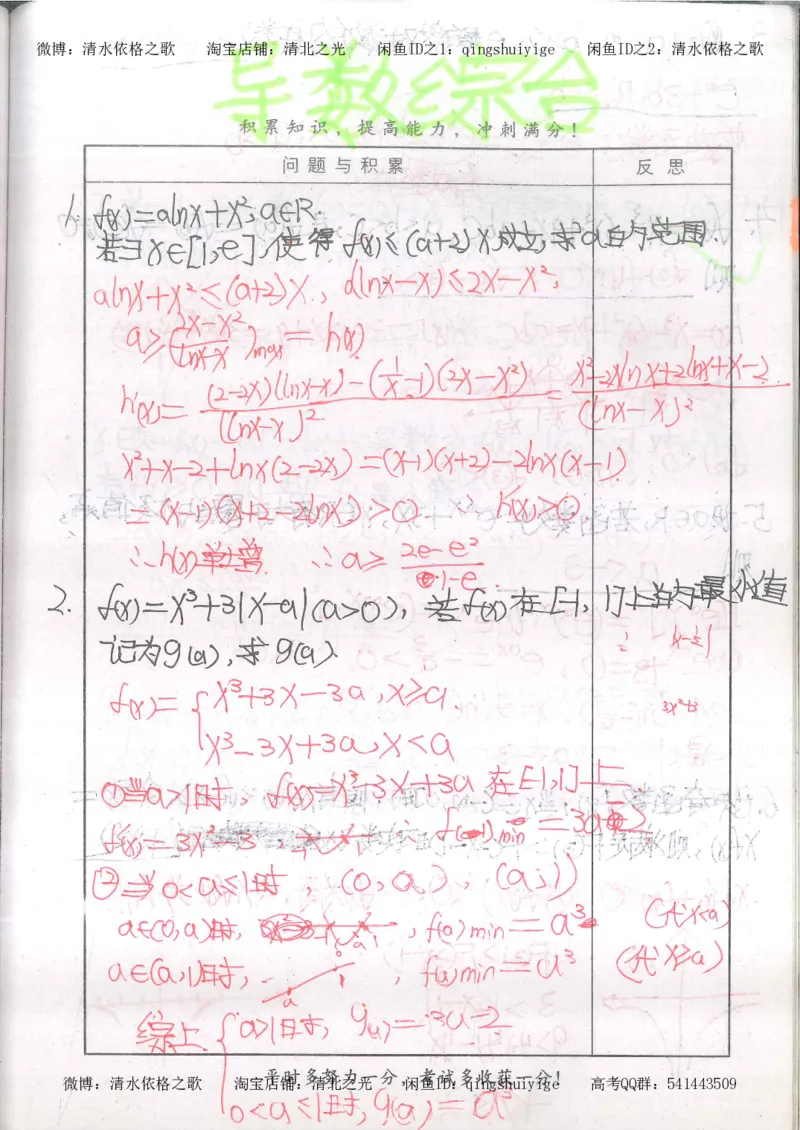 微博：清水依格之歌 淘宝店铺：清北之光 闲鱼ID之1：qingshuiyige 闲鱼ID之2：清水依格之歌
导数综合
积累知识，提高能力，冲刺满分！
问题与积累 反思
1. f(x)=alnx+x²,a∈R.
若∃x∈[1,e],使得f(x)≤(a+2)x成立,求a的范围.
alnx+x²≤(a+2)x, a(lnx-x)≤2x-x²,
a≥(\frac{2x-x²}{lnx-x})max=h(x)
h'(x)=\frac{(2-2x)(lnx-x)-(\frac{1}{x}-1)(2x-x²)}{(lnx-x)²}=\frac{x²-2xlnx+2lnx+x-2}{(lnx-x)²}
x²+x-2+lnx(2-2x)=(x-1)(x+2)-2lnx(x-1)
=(x-1)(x+2-2lnx)>0 ∴h'(x)>0
∴h(x)单增 ∴a≥\frac{2e-e²}{1-e}.
2. f(x)=x³+3|x-a|(a>0),若f(x)在[-1,1]上的最小值
记为g(a),求g(a)
f(x)={x³+3x-3a,x≥a.
x³-3x+3a,x<a
3x²+3
①当a>1时,f(x)=x³-3x+3a在[-1,1]上
f'(x)=3x²-3 ∴f(1)min=3a-2
②当0<a≤1时,(0,a),(a,1)
a∈(0,a)时, ,f(a)min=a³ (代x<a)
a∈(a,1)时, ,f(a)min=a³ (代x≥a)
综上{a>1时,g(a)=3a-2
平时多努力一分，考试多收获一分！
微博：清水依格之歌 淘宝店铺：清北之光 闲鱼ID：qingshuiyige 高考QQ群：541443509
0<a≤1时,g(a)=a³